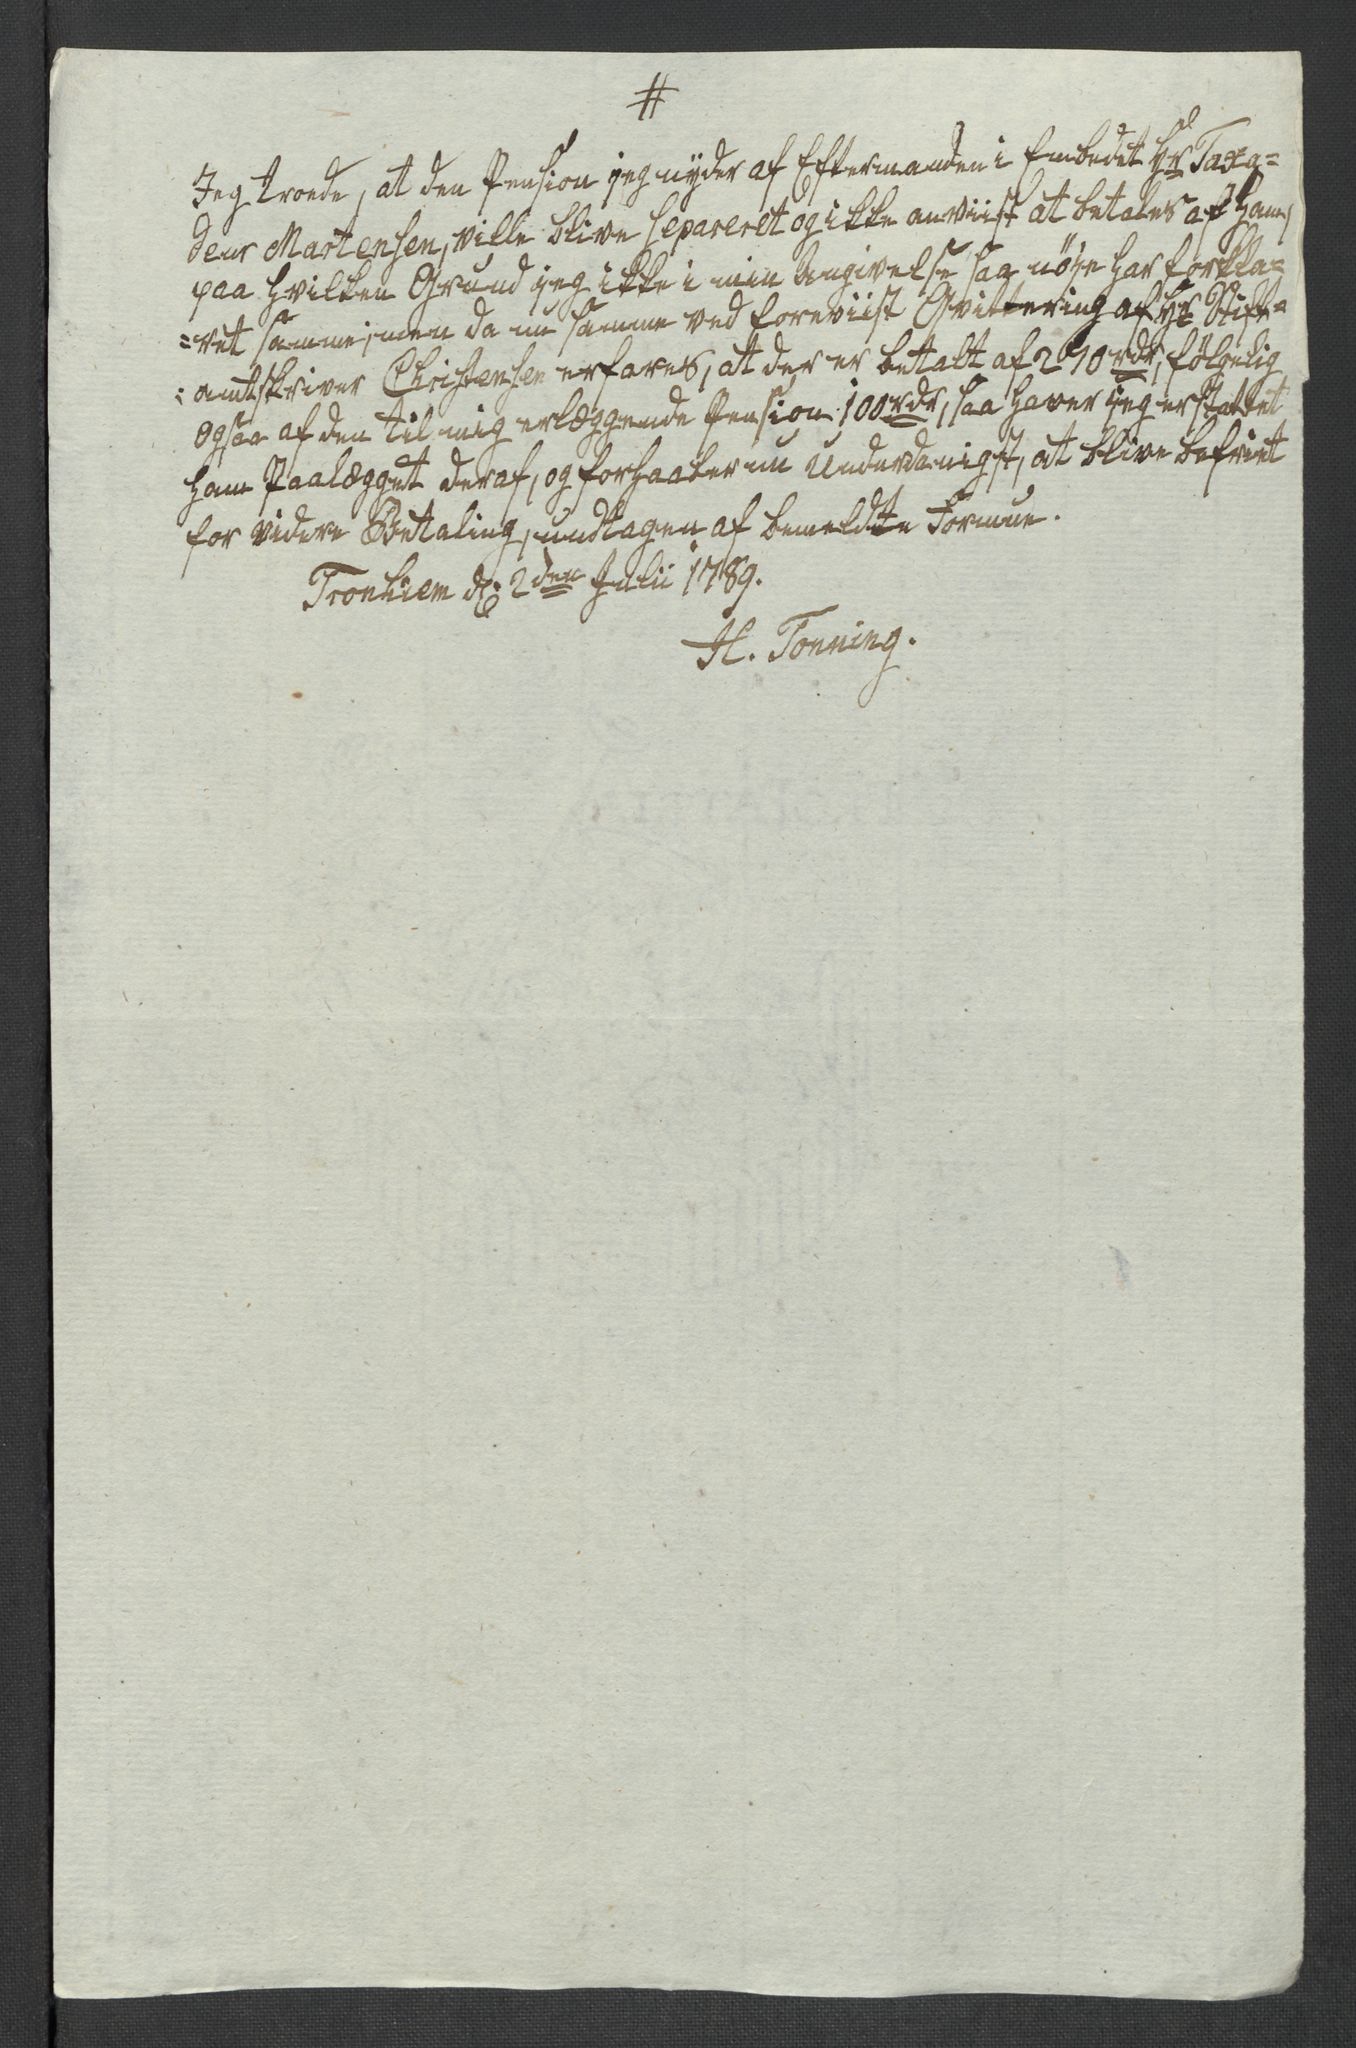 #
Jeg troede, at den Pension jeg nyder af Eftermanden i Embedet Hr Taxa=
deur Martensen, ville blive separeret og ikke anviist at betales af ham,
paa hvilken Grund jeg ikke i min Angivelse saa nöje har forkla=
=ret samme; men da nu samme ved foreviist Qvittering af Hr Stift=
amtskriver Christensen erfares, at der er betalt af 270 rdr, fölgelig
ogsaa af den til mig erlæggende Pension 100 rdr, saa haver jeg erstattet
ham Paalægget deraf, og forhaaber nu Underdanigst, at blive befriet
for videre Betaling, undtagen af bemeldte Formue.
Tronhiem d: 2den Julii 1789.
H. Tonning.